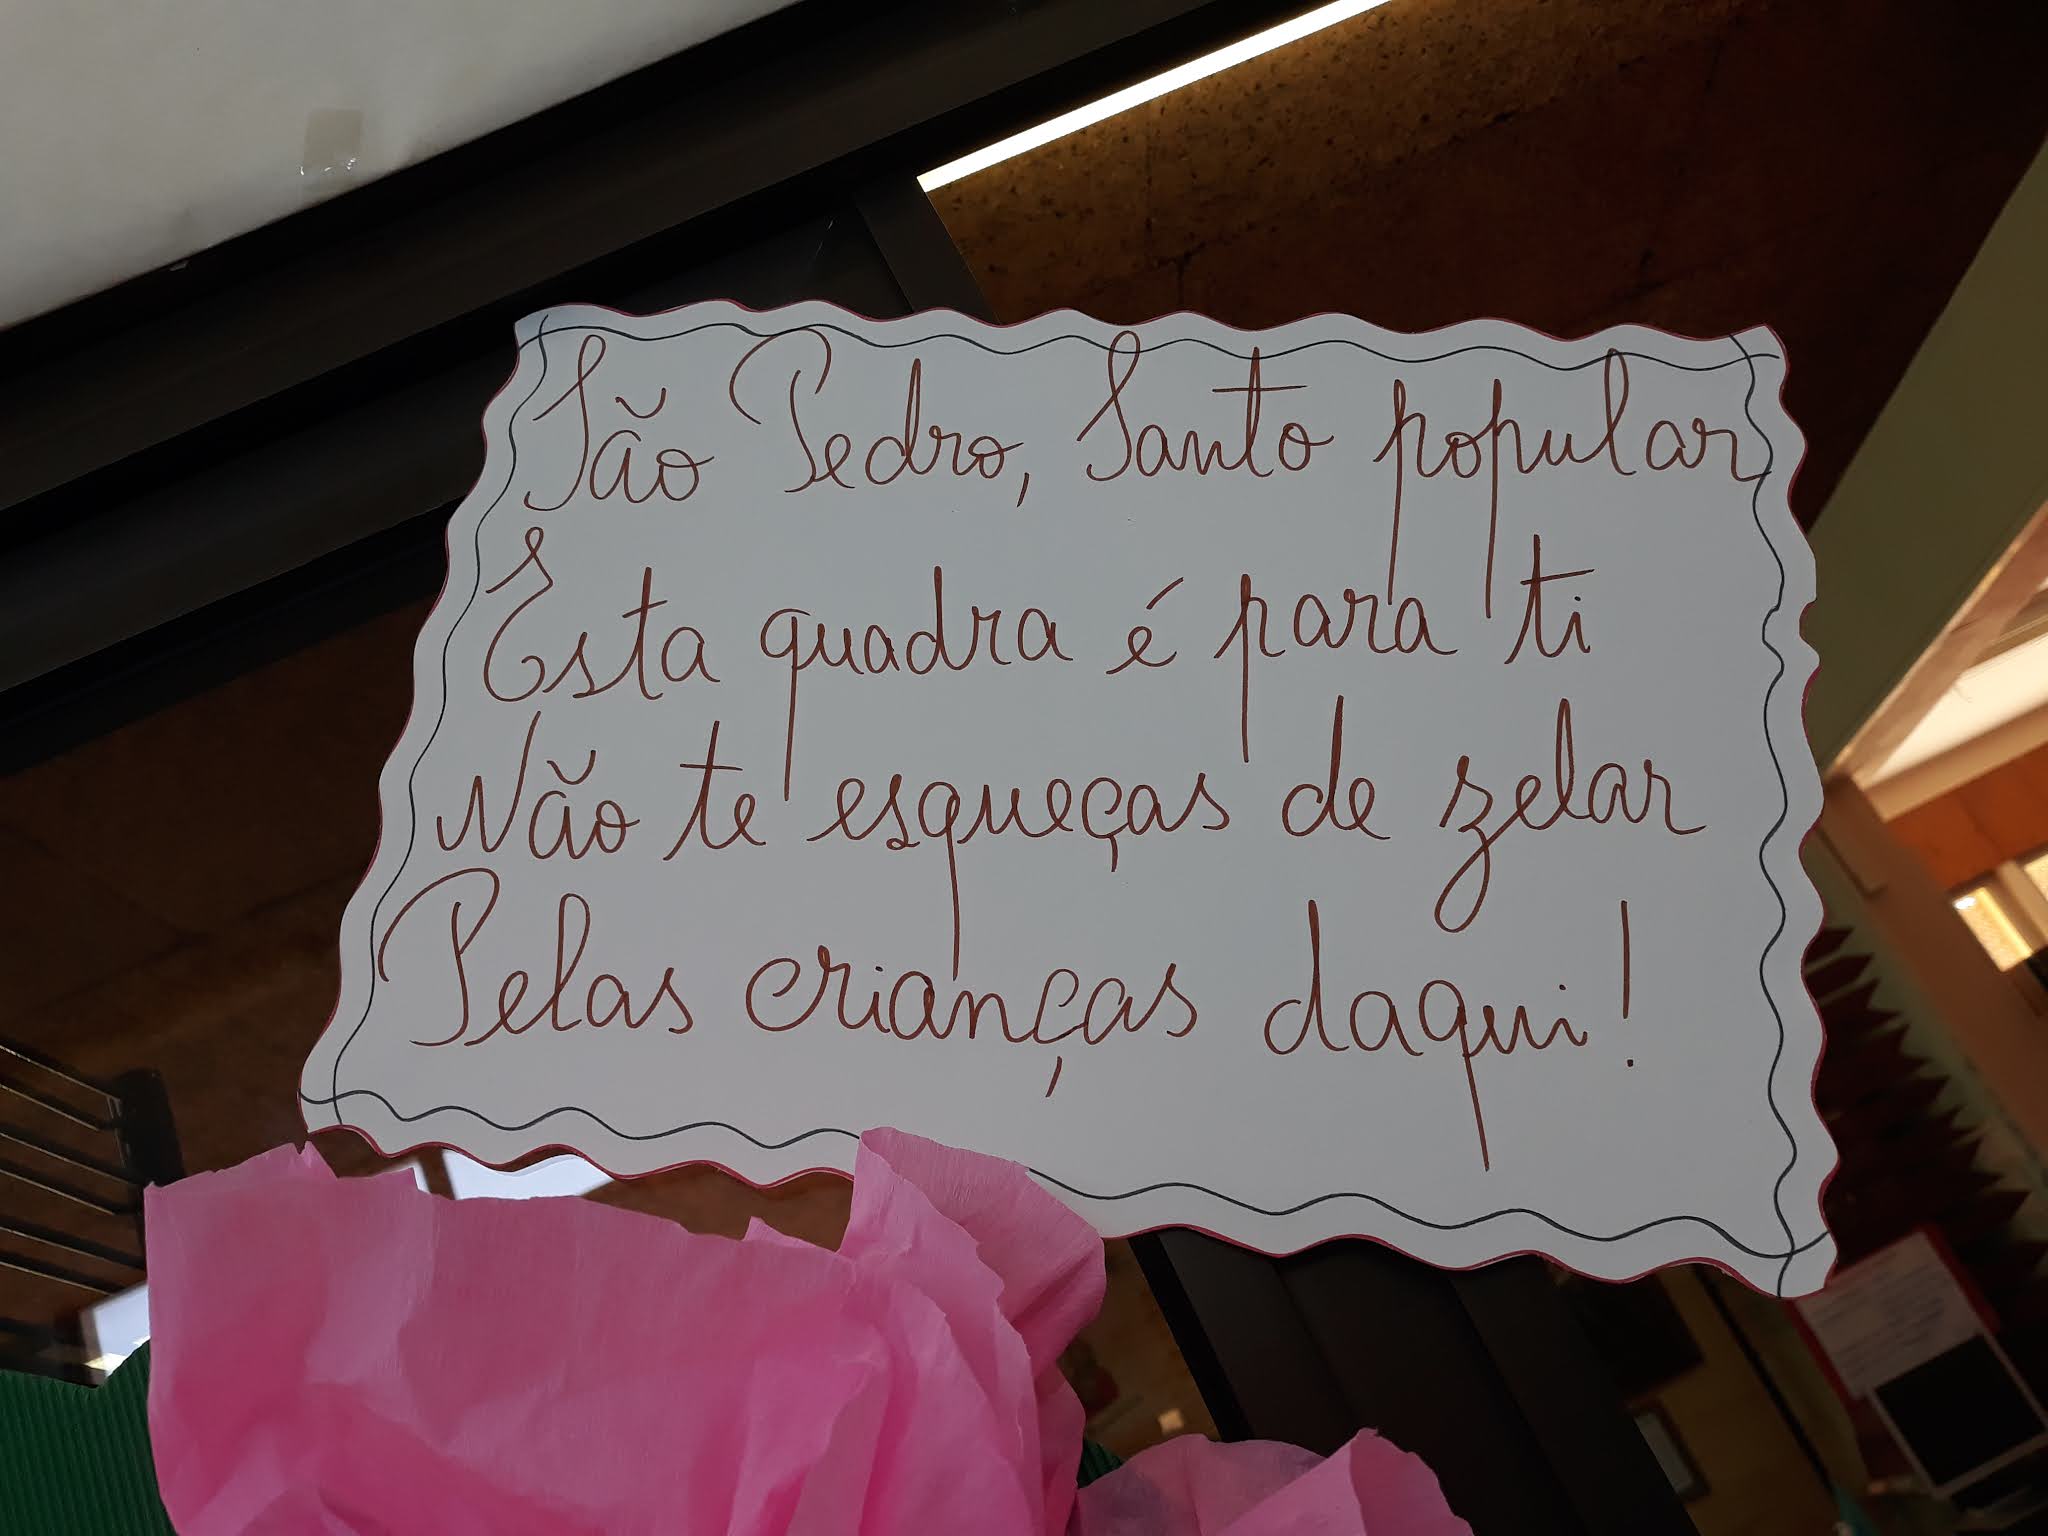 São Pedro, Santo popular
Esta quadra é para ti
Não te esqueças de zelar
Pelas crianças daqui!